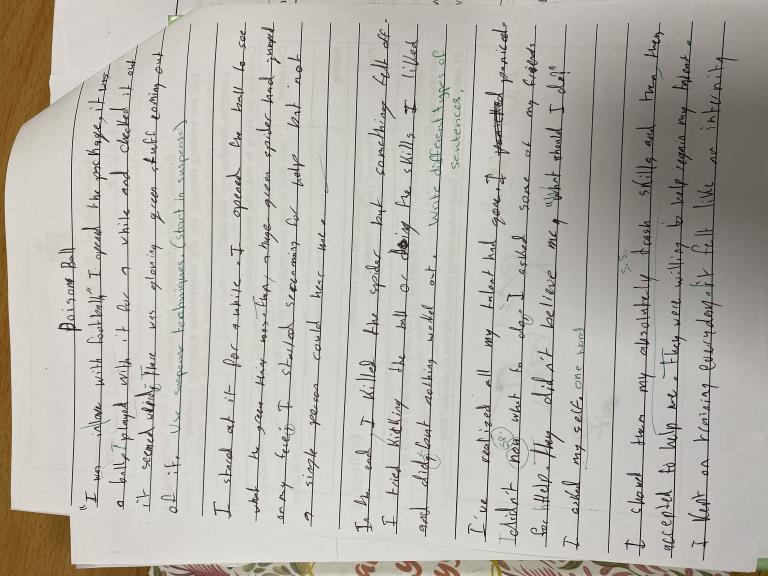 Poison ball
"I was inlove with football," I opened the package, it was
a ball, I played with it for a while and checked it out
it seemed weird, There was glowing green stuff coming out
of it. Use suspense techniques. (start in suspense)
I stared at it for a while. I opened the ball to see
what the green thing was. Then, a huge green spider had jumped
on my face. I started screaming for help but not
a single person could hear me.
In the end, I killed the spider but something felt off.
I tried kicking the ball or doing the skills I liked
and didn't nothing worked out. Write different types of
sentences.
I've realized all my talent had gone. I panicked.
I didn't now what to do, I asked some of my friends
for help. They didn't believe me, "What should I do?"
I asked my self. one word
I showed them my absolutely trash skills and then they
accepted to help me. They were willing to help regain my talent.
I kept on training everyday, it felt like an infernity